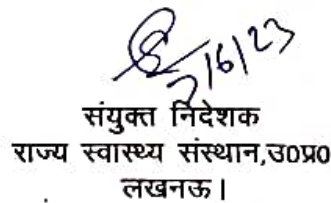 2/6/23
संयुक्त निदेशक
राज्य स्वास्थ्य संस्थान,उ0प्र0
लखनऊ।